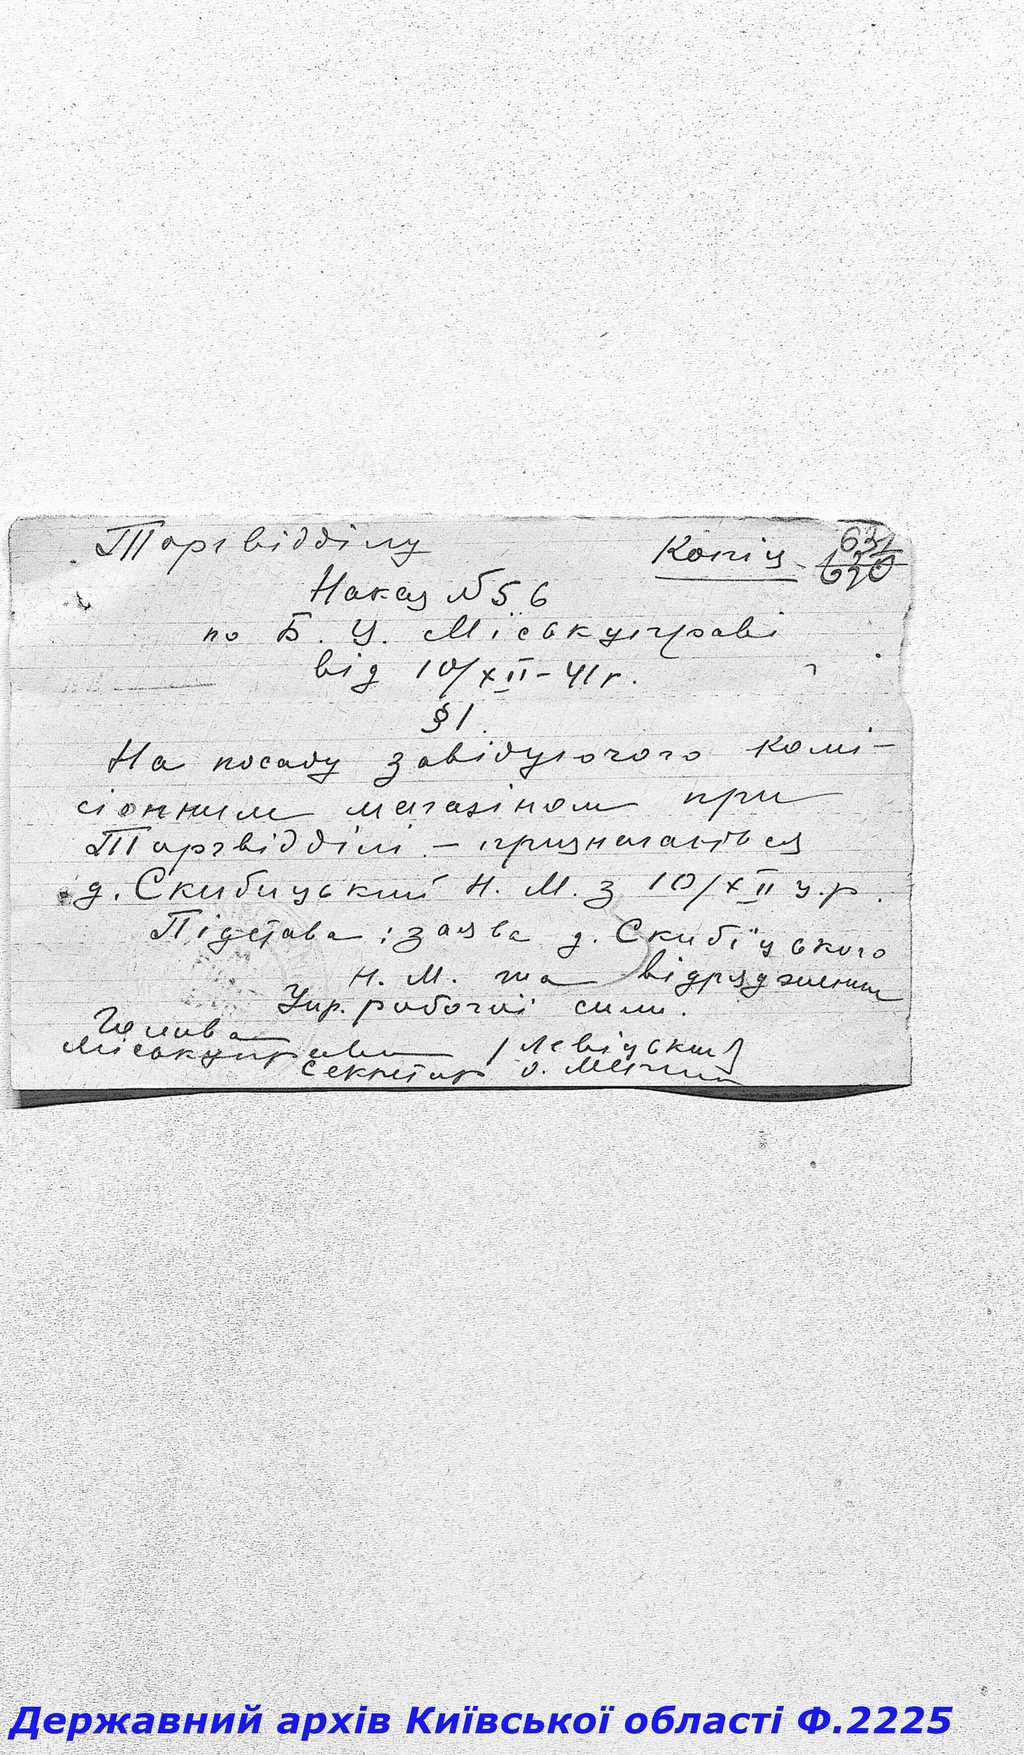 Торгвідділу Копія 631
620
Наказ №56
по Б. Ц. Міськуправі
від 10/XII-41 г.
§1.
На посаду завідуючого комі-
сіонним магазіном при
Торгвідділі - призначається
д. Скибицький Н. М. з 10/XII ц.р.
Підстава: заява д. Скибіцького
Н. М. та відрядження
Упр. робочої сили.
Голова
Міськуправи /Левіцький/
Секретар
Державний архів Київської області Ф.2225